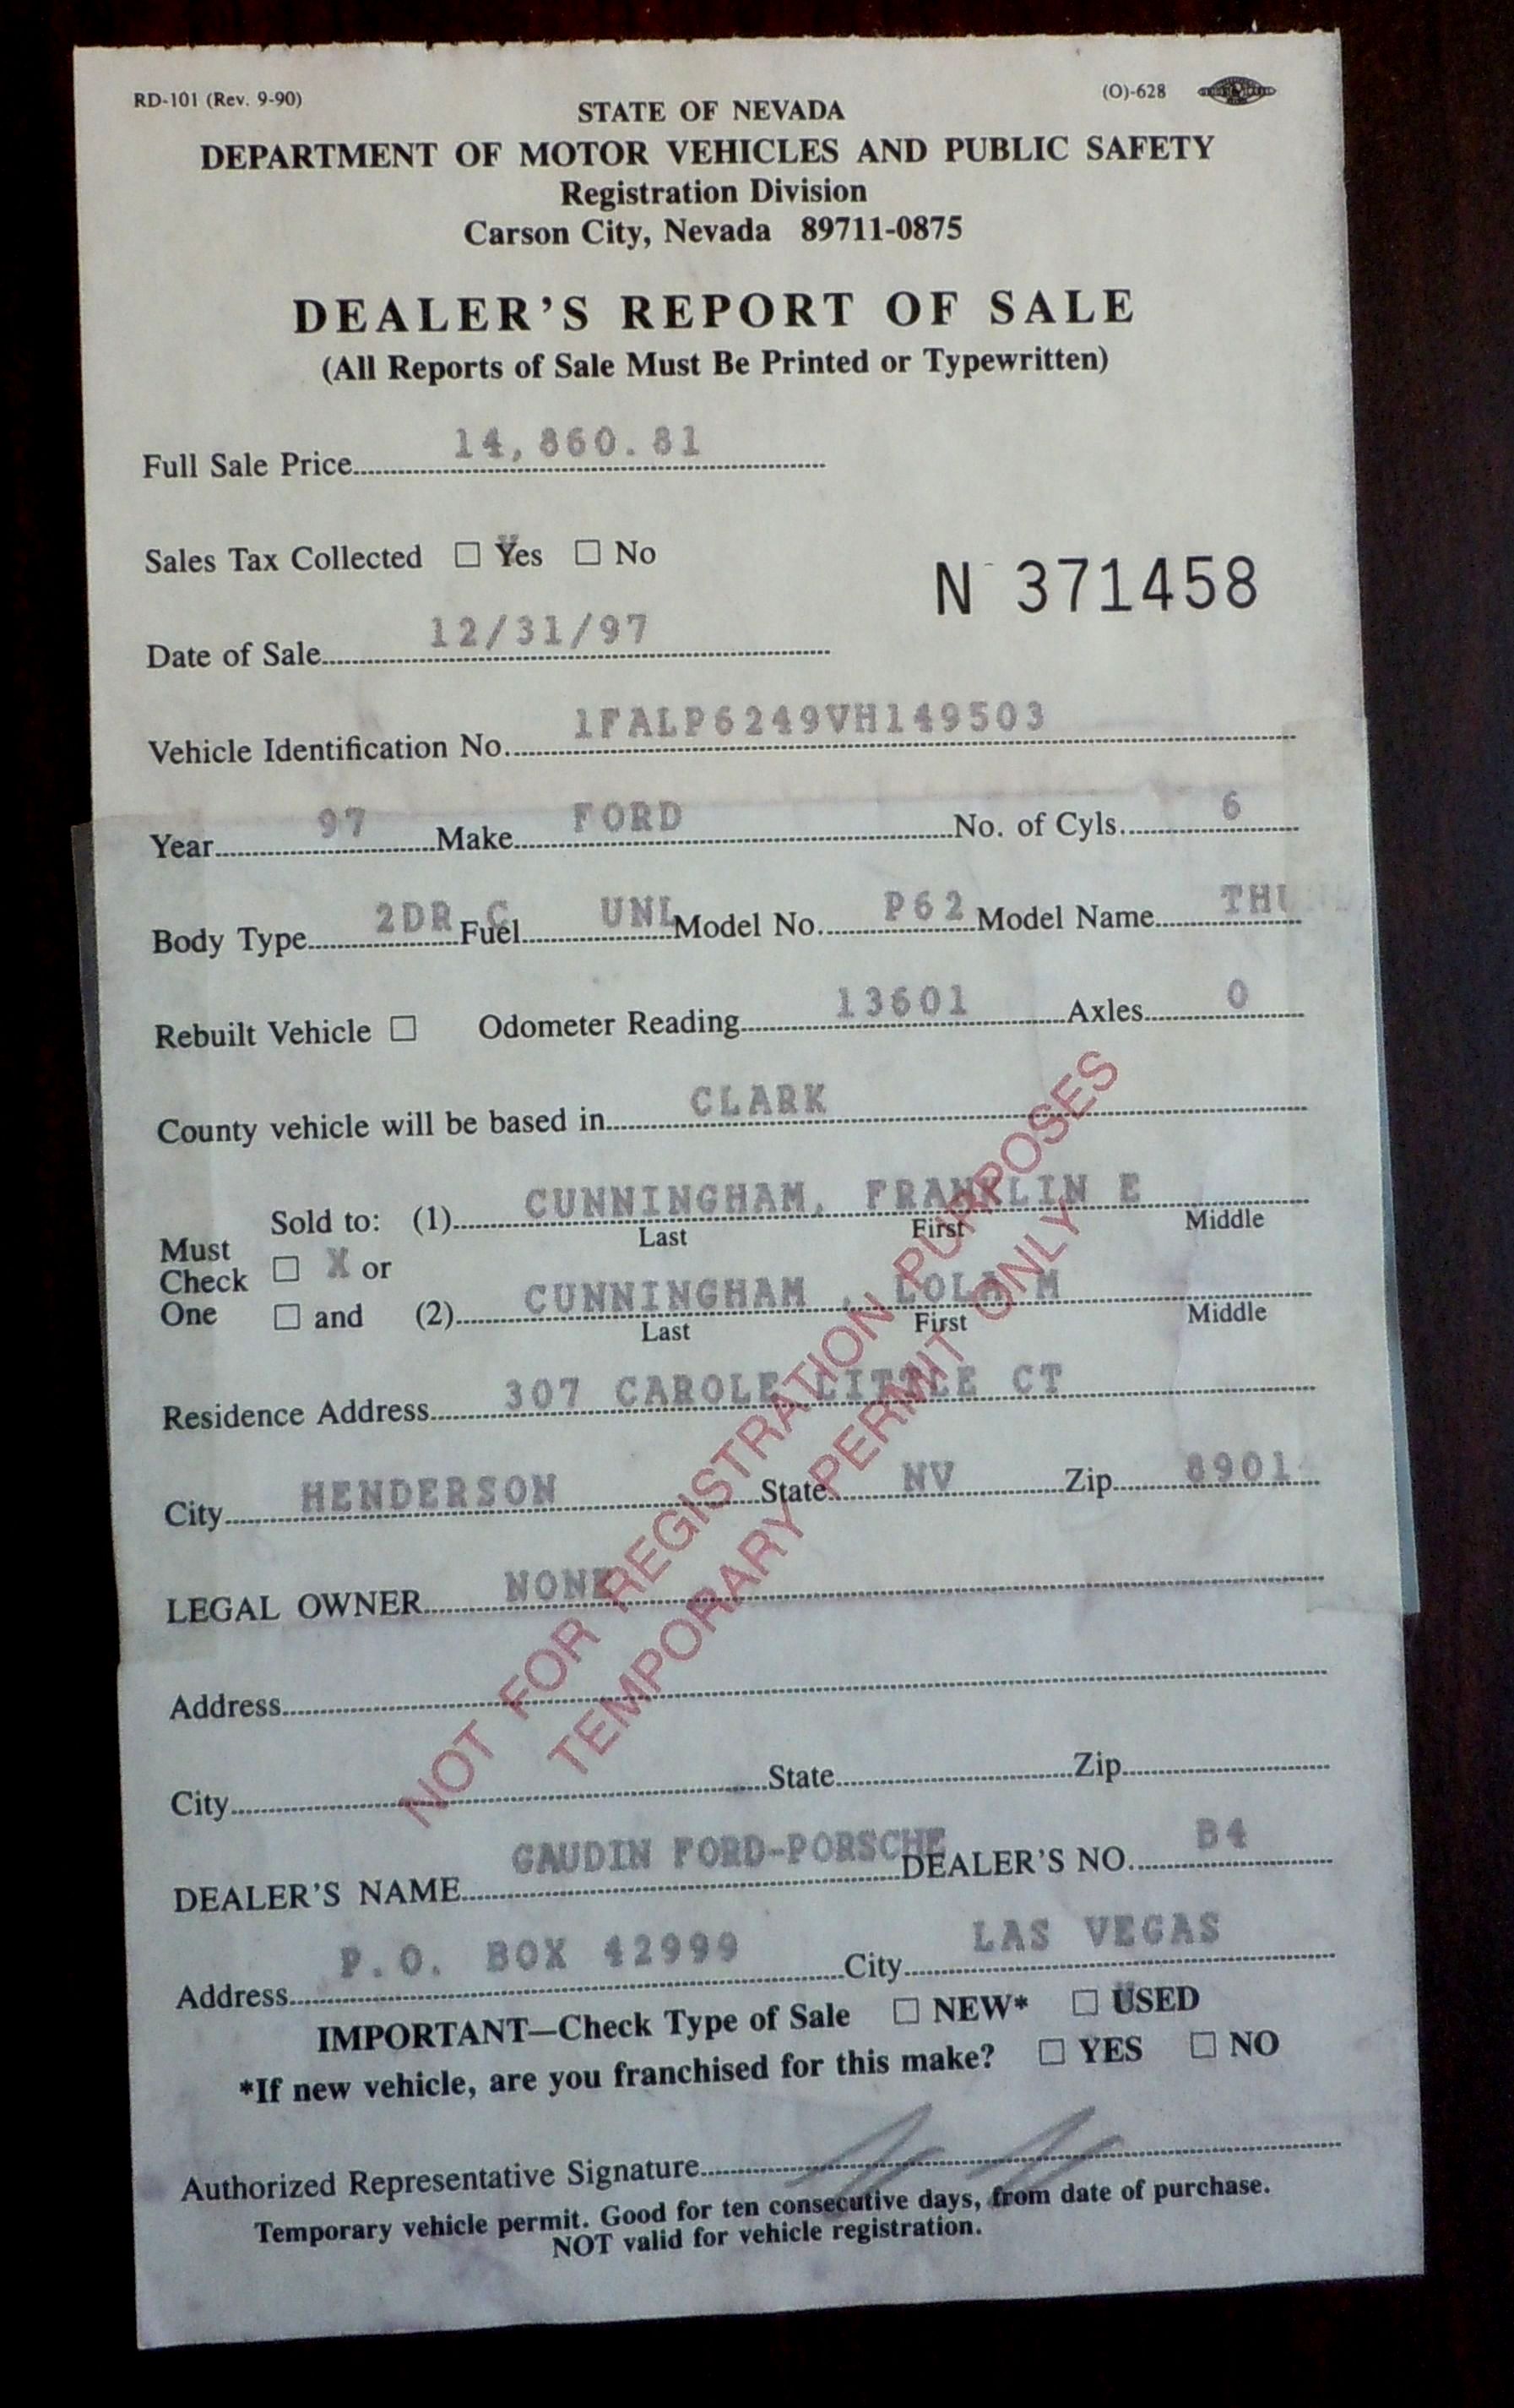 RD-101 (Rev. 9-90)
(O)-628
STATE OF NEVADA
DEPARTMENT OF MOTOR VEHICLES AND PUBLIC SAFETY
Registration Division
Carson City, Nevada 89711-0875
DEALER'S REPORT OF SALE
(All Reports of Sale Must Be Printed or Typewritten)
Full Sale Price 14,860.81
Sales Tax Collected ☐ Yes ☐ No
N 371458
Date of Sale 12/31/97
Vehicle Identification No. 1FALP6249VH149503
Year 97 Make FORD No. of Cyls. 6
Body Type 2DR C Fuel UNL Model No. P62 Model Name THU
Rebuilt Vehicle ☐ Odometer Reading 13601 Axles 0
County vehicle will be based in CLARK
Sold to: (1) CUNNINGHAM, FRANKLIN E
Last First Middle
Must Check One ☐ X or
☐ and (2) CUNNINGHAM , LOLA M
Last First Middle
Residence Address 307 CAROLE LITTLE CT
City HENDERSON State NV Zip 8901
LEGAL OWNER NONE
Address
City State Zip
NOT FOR REGISTRATION PURPOSES
TEMPORARY PERMIT ONLY
DEALER'S NAME GAUDIN FORD-PORSCHE DEALER'S NO. B4
Address P.O. BOX 42999 City LAS VEGAS
IMPORTANT—Check Type of Sale ☐ NEW* ☐ USED
*If new vehicle, are you franchised for this make? ☐ YES ☐ NO
Authorized Representative Signature
Temporary vehicle permit. Good for ten consecutive days, from date of purchase.
NOT valid for vehicle registration.